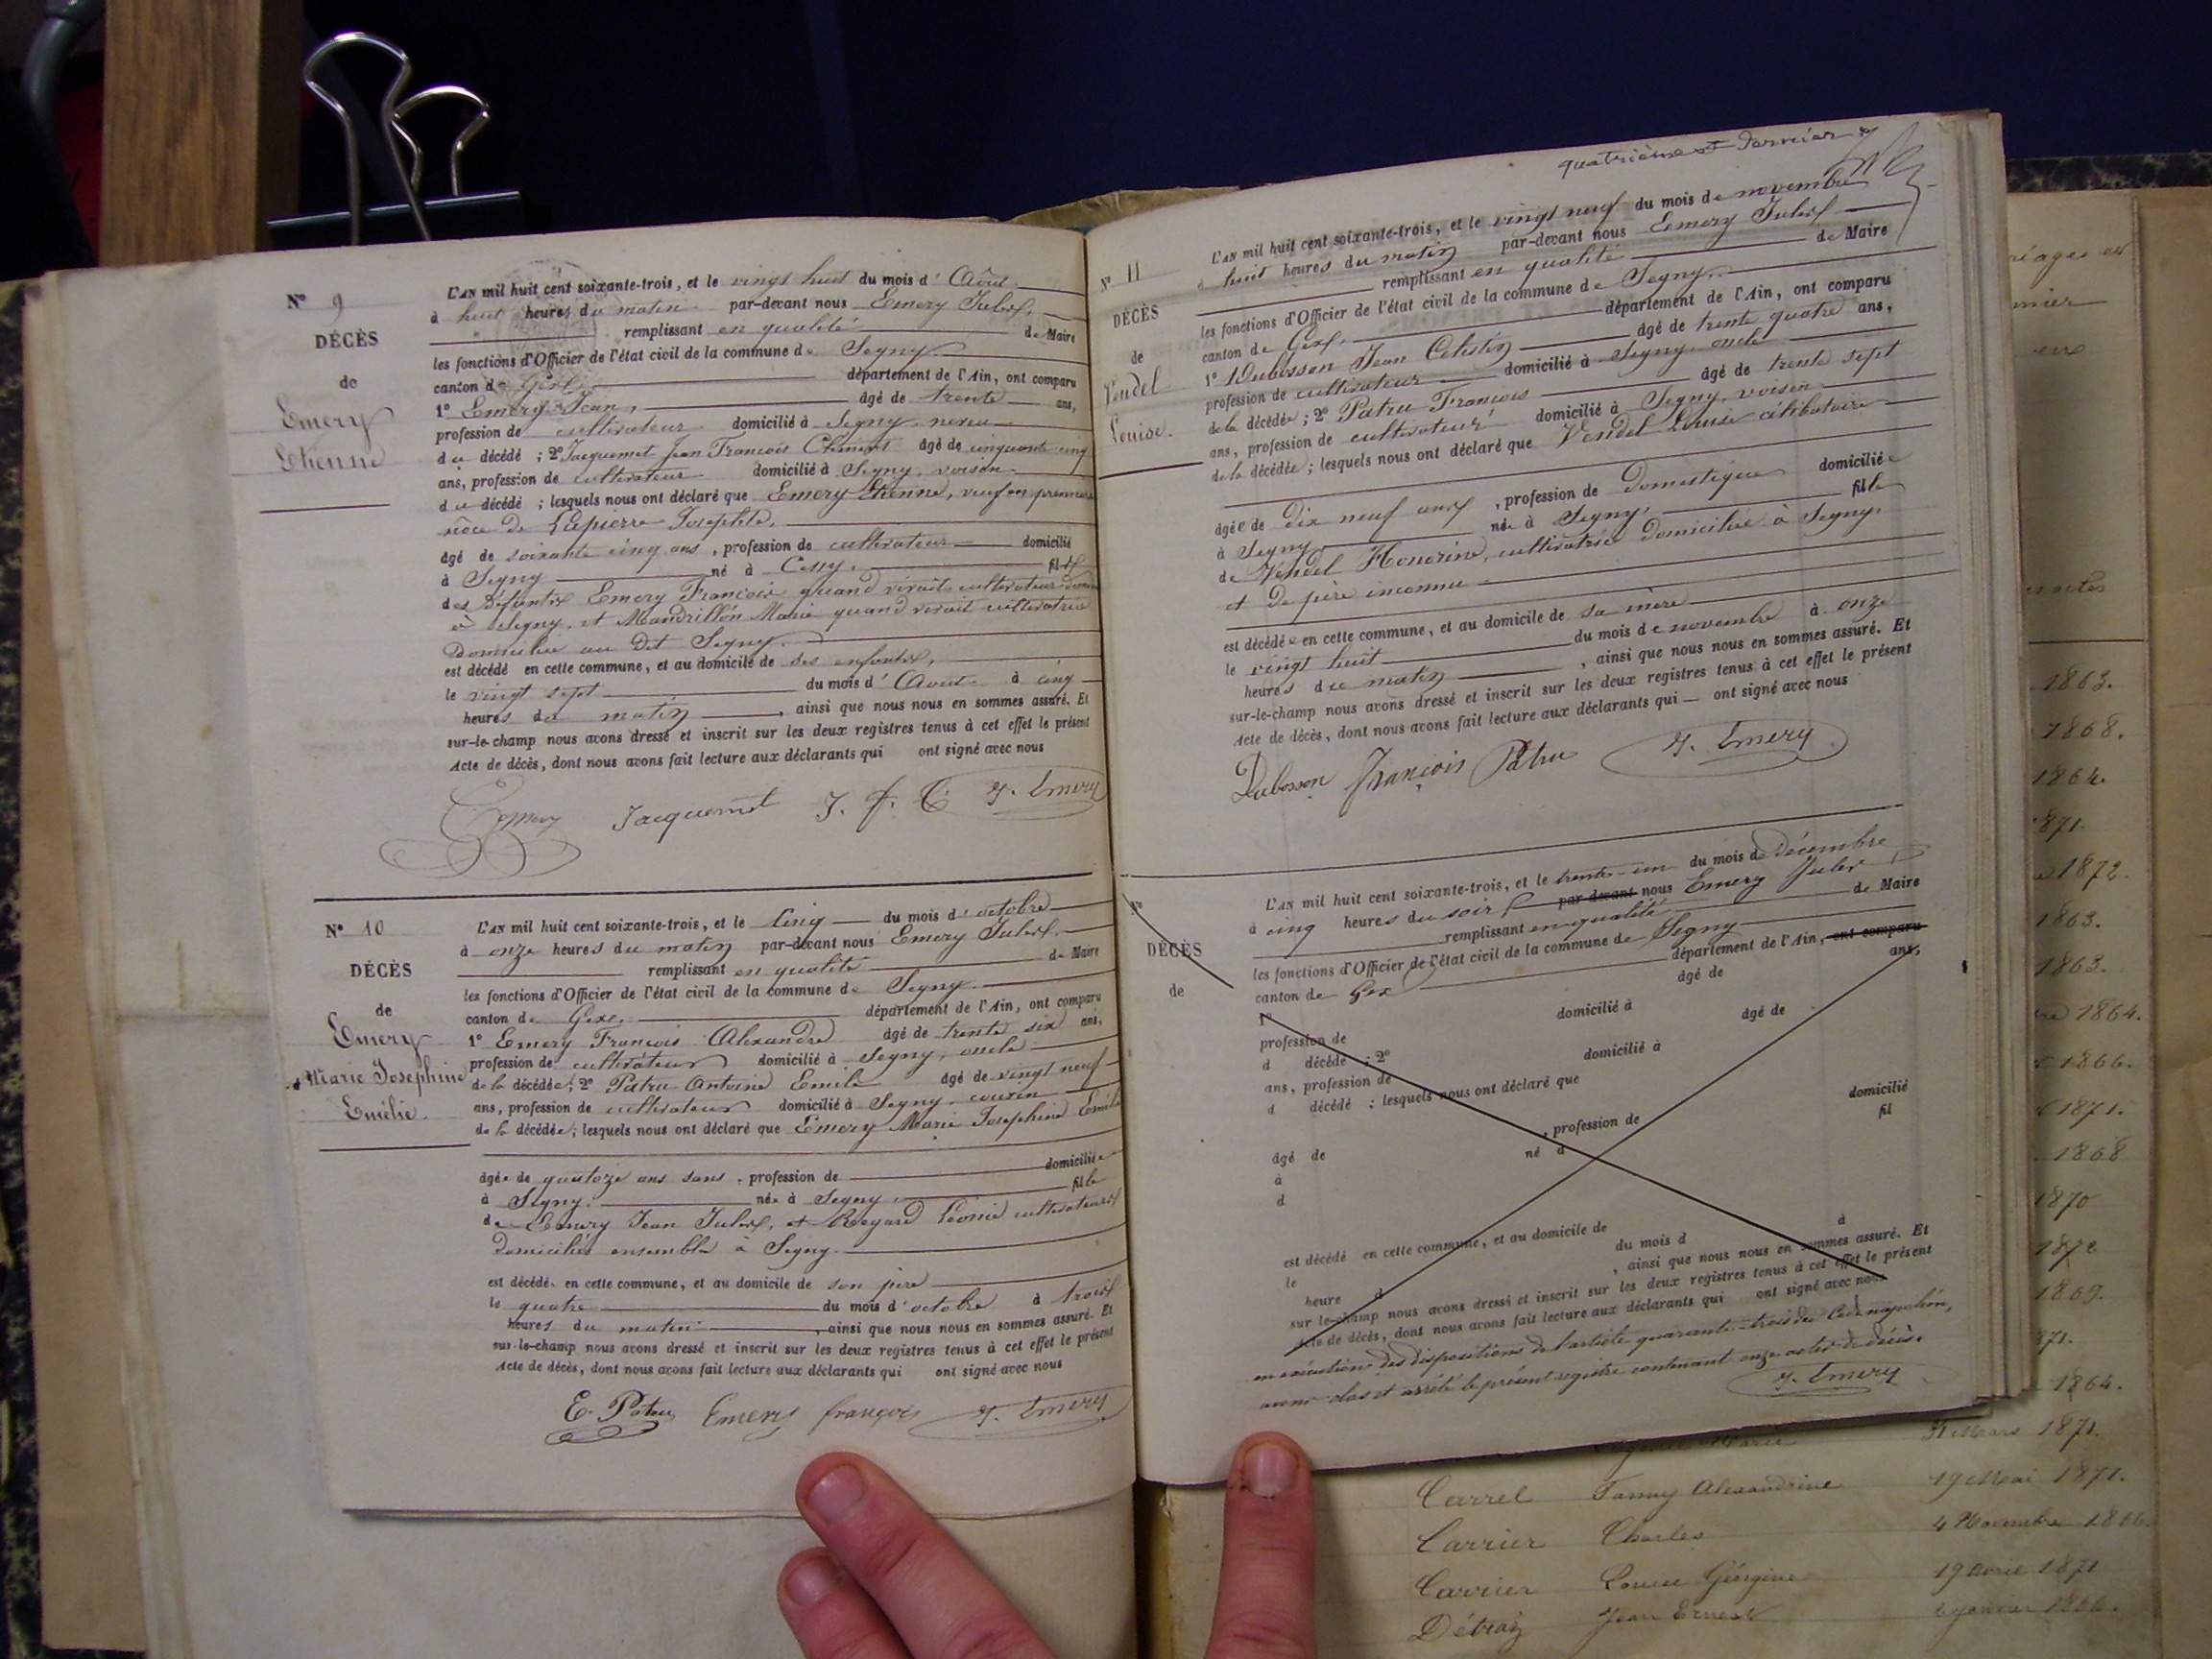 N° 9
DÉCÈS
de
Emery
Etienne
L'AN mil huit cent soixante-trois, et le vingt huit du mois d' Août
à huit heures du matin par-devant nous Emery Jules,
remplissant en qualité de Maire
les fonctions d'Officier de l'état civil de la commune de Segny
canton de Gex, département de l'Ain, ont comparu
1° Emery Jean, âgé de trente ans,
profession de cultivateur domicilié à Segny, neveu
du décédé ; 2° Jacquemet Jean François Clément âgé de cinquante cinq
ans, profession de cultivateur domicilié à Segny, voisin
du décédé ; lesquels nous ont déclaré que Emery Etienne, veuf en premiere
nôce de Lapierre Josephte,
âgé de soixante cinq ans, profession de cultivateur domicilié
à Segny né à Cessy, fils
des défunts Emery François quand vivait cultivateur
à Segny, et Mandrillon Marie quand vivait cultivatrice
domiciliée au dit Segny.
est décédé en cette commune, et au domicile de ses enfants,
le vingt sept du mois d' Août à cinq
heures du matin, ainsi que nous nous en sommes assuré. Et
sur-le-champ nous avons dressé et inscrit sur les deux registres tenus à cet effet le présent
Acte de décès, dont nous avons fait lecture aux déclarants qui ont signé avec nous
Emery Jacquemet J. f. C J. Emery
N° 10
DÉCÈS
de
Emery
Marie Josephine
Emélie.
L'AN mil huit cent soixante-trois, et le cinq du mois d' octobre
à onze heures du matin par-devant nous Emery Jules,
remplissant en qualité de Maire
les fonctions d'Officier de l'état civil de la commune de Segny
canton de Gex, département de l'Ain, ont comparu
1° Emery François Alexandre âgé de trente six ans,
profession de cultivateur domicilié à Segny, oncle
de la décédée ; 2° Patru Antoine Emile âgé de vingt neuf
ans, profession de cultivateur domicilié à Segny, cousin
de la décédée ; lesquels nous ont déclaré que Emery Marie Josephine
âgée de quatorze ans sans, profession de domiciliée
à Segny. née à Segny, fille
de Emery Jean Jules, et Regard Léonie cultivateurs
domiciliés ensemble à Segny.
est décédée en cette commune, et au domicile de son père
le quatre du mois d' octobre à trois
heures du matin, ainsi que nous nous en sommes assuré. Et
sur-le-champ nous avons dressé et inscrit sur les deux registres tenus à cet effet le présent
Acte de décès, dont nous avons fait lecture aux déclarants qui ont signé avec nous
E. Patru Emery françois J. Emery
quatrième et dernier
N° 11
DÉCÈS
de
Vendel
Louise.
L'AN mil huit cent soixante-trois, et le vingt neuf du mois de novembre
à huit heures du matin par-devant nous Emery Jules
remplissant en qualité de Maire
les fonctions d'Officier de l'état civil de la commune de Segny,
canton de Gex, département de l'Ain, ont comparu
1° Dubosson Jean Célestin âgé de trente quatre ans,
profession de cultivateur domicilié à Segny oncle
de la décédée ; 2° Patru François âgé de trente sept
ans, profession de cultivateur domicilié à Segny, voisin
de la décédée ; lesquels nous ont déclaré que Vendel Louise célibataire
âgée de dix neuf ans, profession de Domestique domiciliée
à Segny née à Segny, fille
de Vendel Honorine, cultivatrice domiciliée à Segny,
et de père inconnu
est décédée en cette commune, et au domicile de sa mère
le vingt huit du mois de novembre à onze
heures du matin, ainsi que nous nous en sommes assuré. Et
sur-le-champ nous avons dressé et inscrit sur les deux registres tenus à cet effet le présent
Acte de décès, dont nous avons fait lecture aux déclarants qui ont signé avec nous
Dubosson françois Patru J. Emery
N°
DÉCÈS
de
L'AN mil huit cent soixante-trois, et le trente-un du mois de décembre
à cinq heures du soir par-devant nous Emery Jules
remplissant en qualité de Maire
les fonctions d'Officier de l'état civil de la commune de Segny
canton de Gex département de l'Ain, ont comparu
1° âgé de ans,
profession de domicilié à
d décédé ; 2° âgé de
ans, profession de domicilié à
d décédé ; lesquels nous ont déclaré que
âgé de , profession de domicilié
à né à fil
d
est décédé en cette commune, et au domicile de
le du mois d à
heure d , ainsi que nous nous en sommes assuré. Et
sur le-champ nous avons dressé et inscrit sur les deux registres tenus à cet effet le présent
Acte de décès, dont nous avons fait lecture aux déclarants qui ont signé avec nous
en exécution des dispositions de l'article quarante-trois du Code napoléon,
avons clos et arrêté le présent registre contenant onze actes de décès.
J. Emery
1863.
1868.
1864.
1871.
1872.
1863.
1863.
1864.
1866.
1871.
1868
1870
1872
1869.
1871.
1864.
Mars 1871.
Carrel Fanny Alexandrine 19 Mai 1871.
Carrier Charles 4 Novembre 1866.
Carrier Louise Géorgine 19 Avril 1871
Détraz Jean Ernest